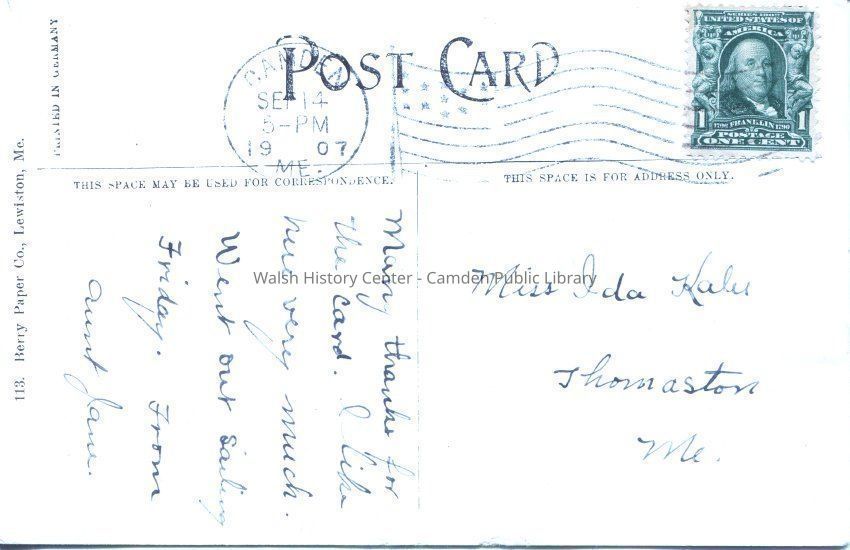 POST CARD
CAMDEN
SEP 14
5-PM
19 07
ME.
SERIES 1902
UNITED STATES OF
AMERICA
1 1790 FRANKLIN 1790 1
POSTAGE
ONE CENT
PRINTED IN GERMANY
113. Berry Paper Co., Lewiston, Me.
THIS SPACE MAY BE USED FOR CORRESPONDENCE.
THIS SPACE IS FOR ADDRESS ONLY.
Many thanks for
the card. I like
very much.
Went out sailing
Friday. From
Aunt Jane.
Walsh History Center - Camden Public Library
Miss Ida
Thomaston
Me.